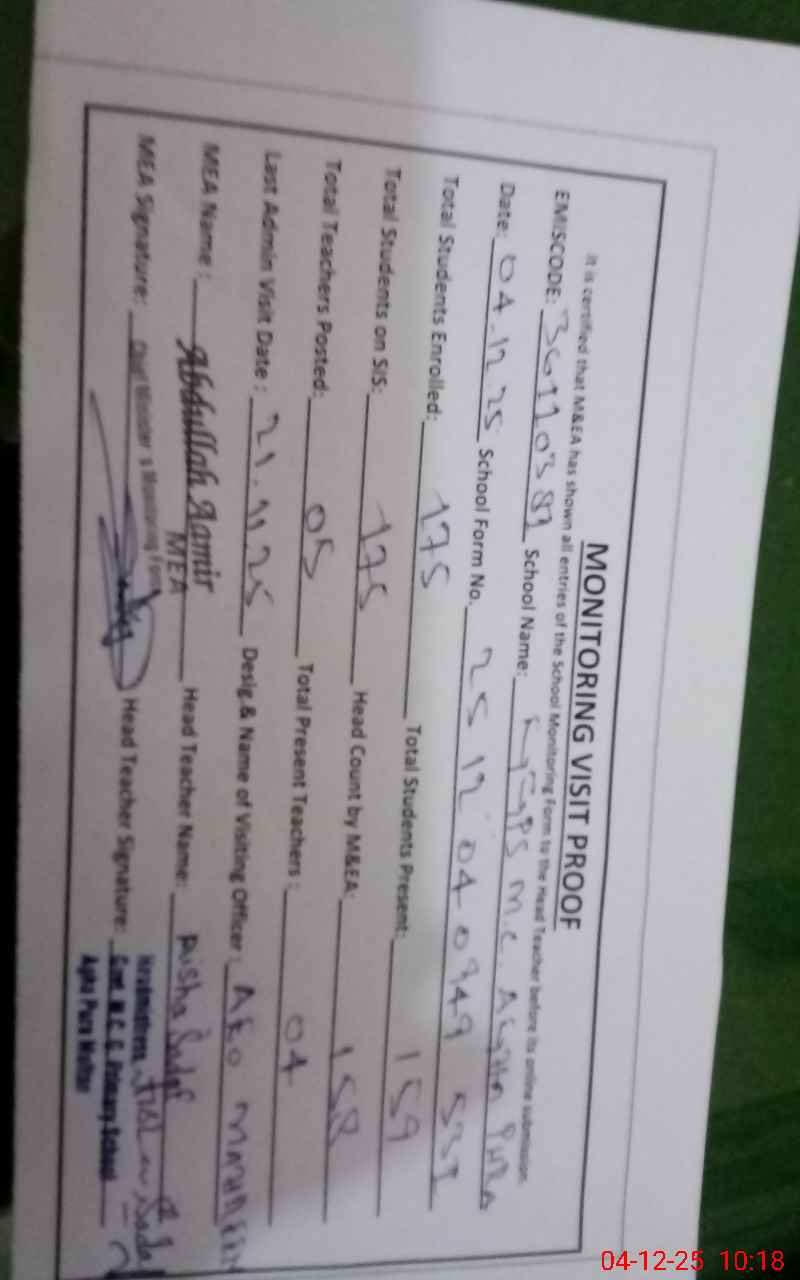 MONITORING VISIT PROOF
It is certified that M&EA has shown all entries of the School Monitoring Form to the Head Teacher before its online submission.
EMISCODE: School Name: M.C. AGHA PURA
Date: 04.12.25 School Form No. 25 12 04 0949 531
Total Students Enrolled: 175 Total Students Present: 159
Total Students on SIS: 175 Head Count by M&EA: 158
Total Teachers Posted: 05 Total Present Teachers: 04
Last Admin Visit Date: 21.11.25 Desig & Name of Visiting Officer: AEO MAHREEN
MEA Name: Abdullah Aamir Head Teacher Name: Aisha Sadaf
MEA
MEA Signature: Chief Minister's Monitoring Force Head Teacher Signature:
Headmistress
Govt. M.C. G. Primary School
Agha Pura Multan
04-12-25 10:18